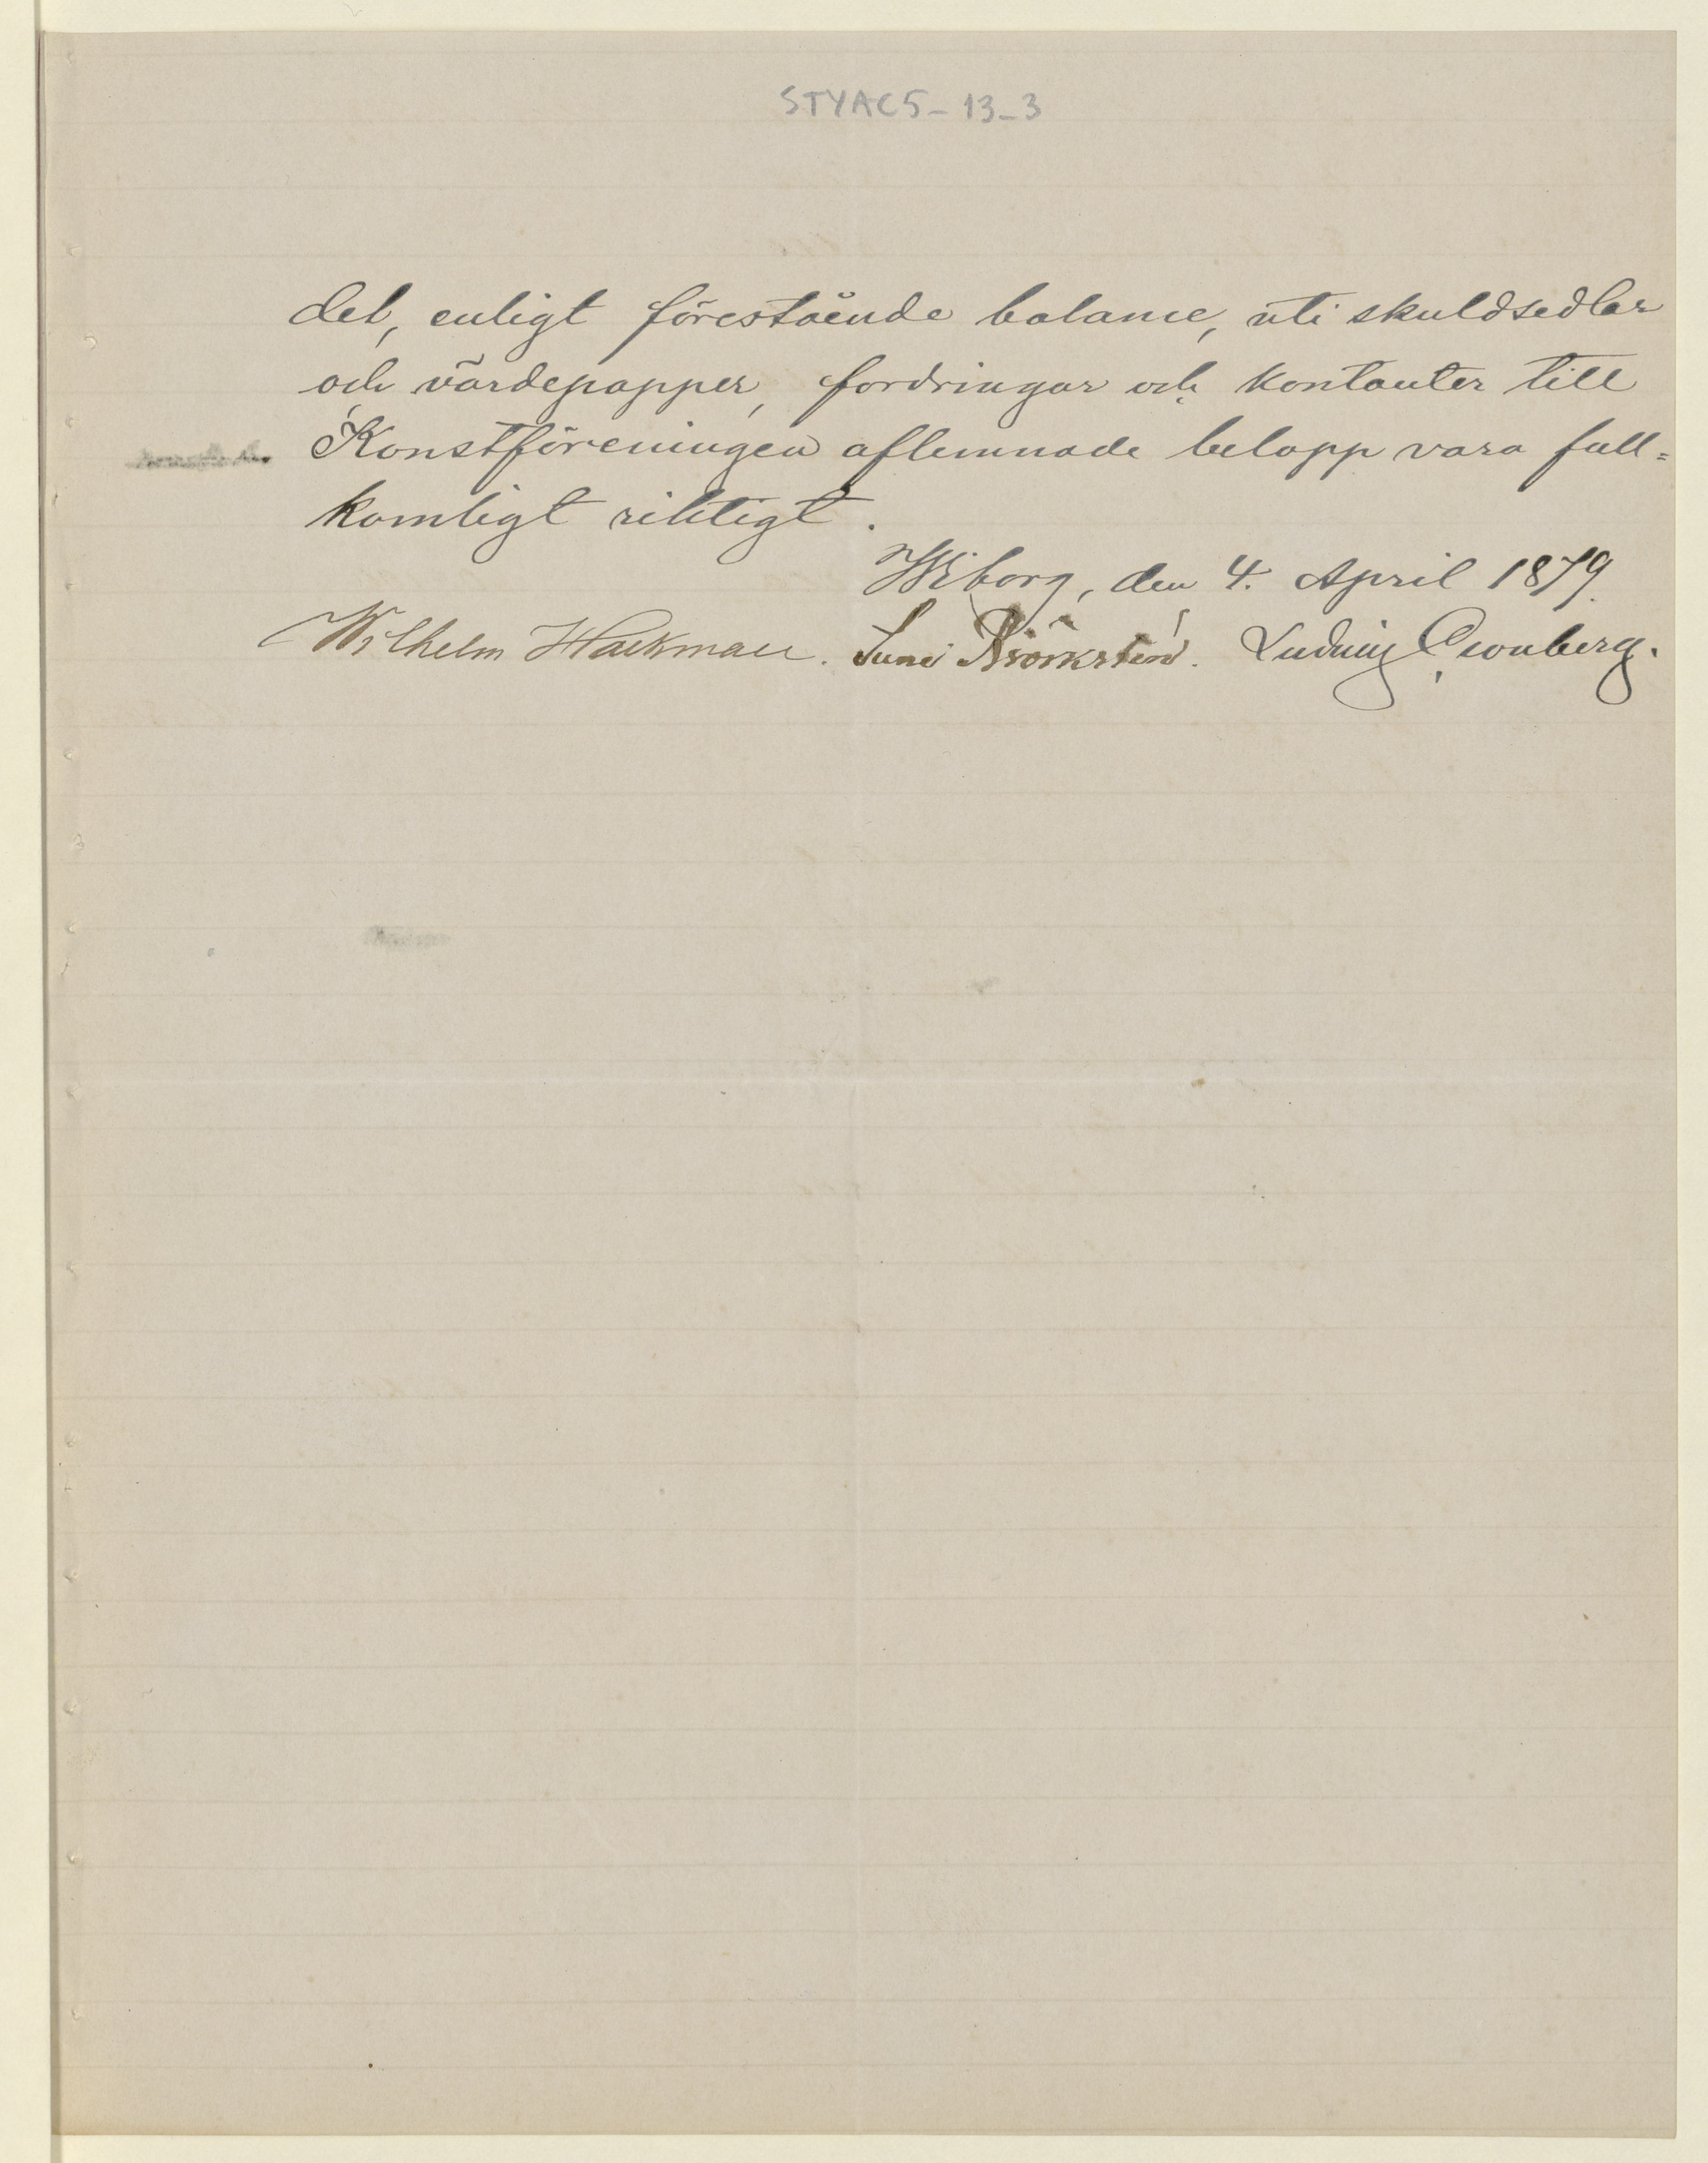 STYAC5-13-3
det, enligt förestående balance, uti skuldsedlar
och värdepapper, fordringar och kontanter till
Konstföreningen aflemnade belopp vara full=
komligt riktigt.
Wiborg, den 4. April 1879.
Wilhelm Hackman. Björksten. Ludvig Cronberg.